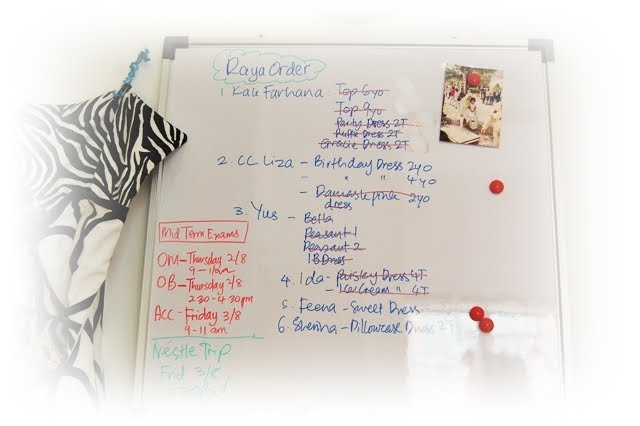 Raya Order
1. Kak Farhana : Top 6yo
Top 9yo
Party Dress 2T
Puffie Dress 2T
Gracie Dress 2T
2. CC Liza - Birthday Dress 2yo
- " " 4yo
- Damask pink 2yo
dress
3. Yus - Bella
Peasant 1
Peasant 2
IB Dress
4. Ida - Paisley Dress 4T
- Ice Cream " 4T
5. Feena - Sweet Dress
6. Sherina - Pillowcase Dress 2T
Mid Term Exams
OM - Thursday 2/8
9 - 11am
OB - Thursday 2/8
2.30 - 4.30pm
ACC - Friday 3/8
9 - 11 am
Nestle Trip
Frid 3/8